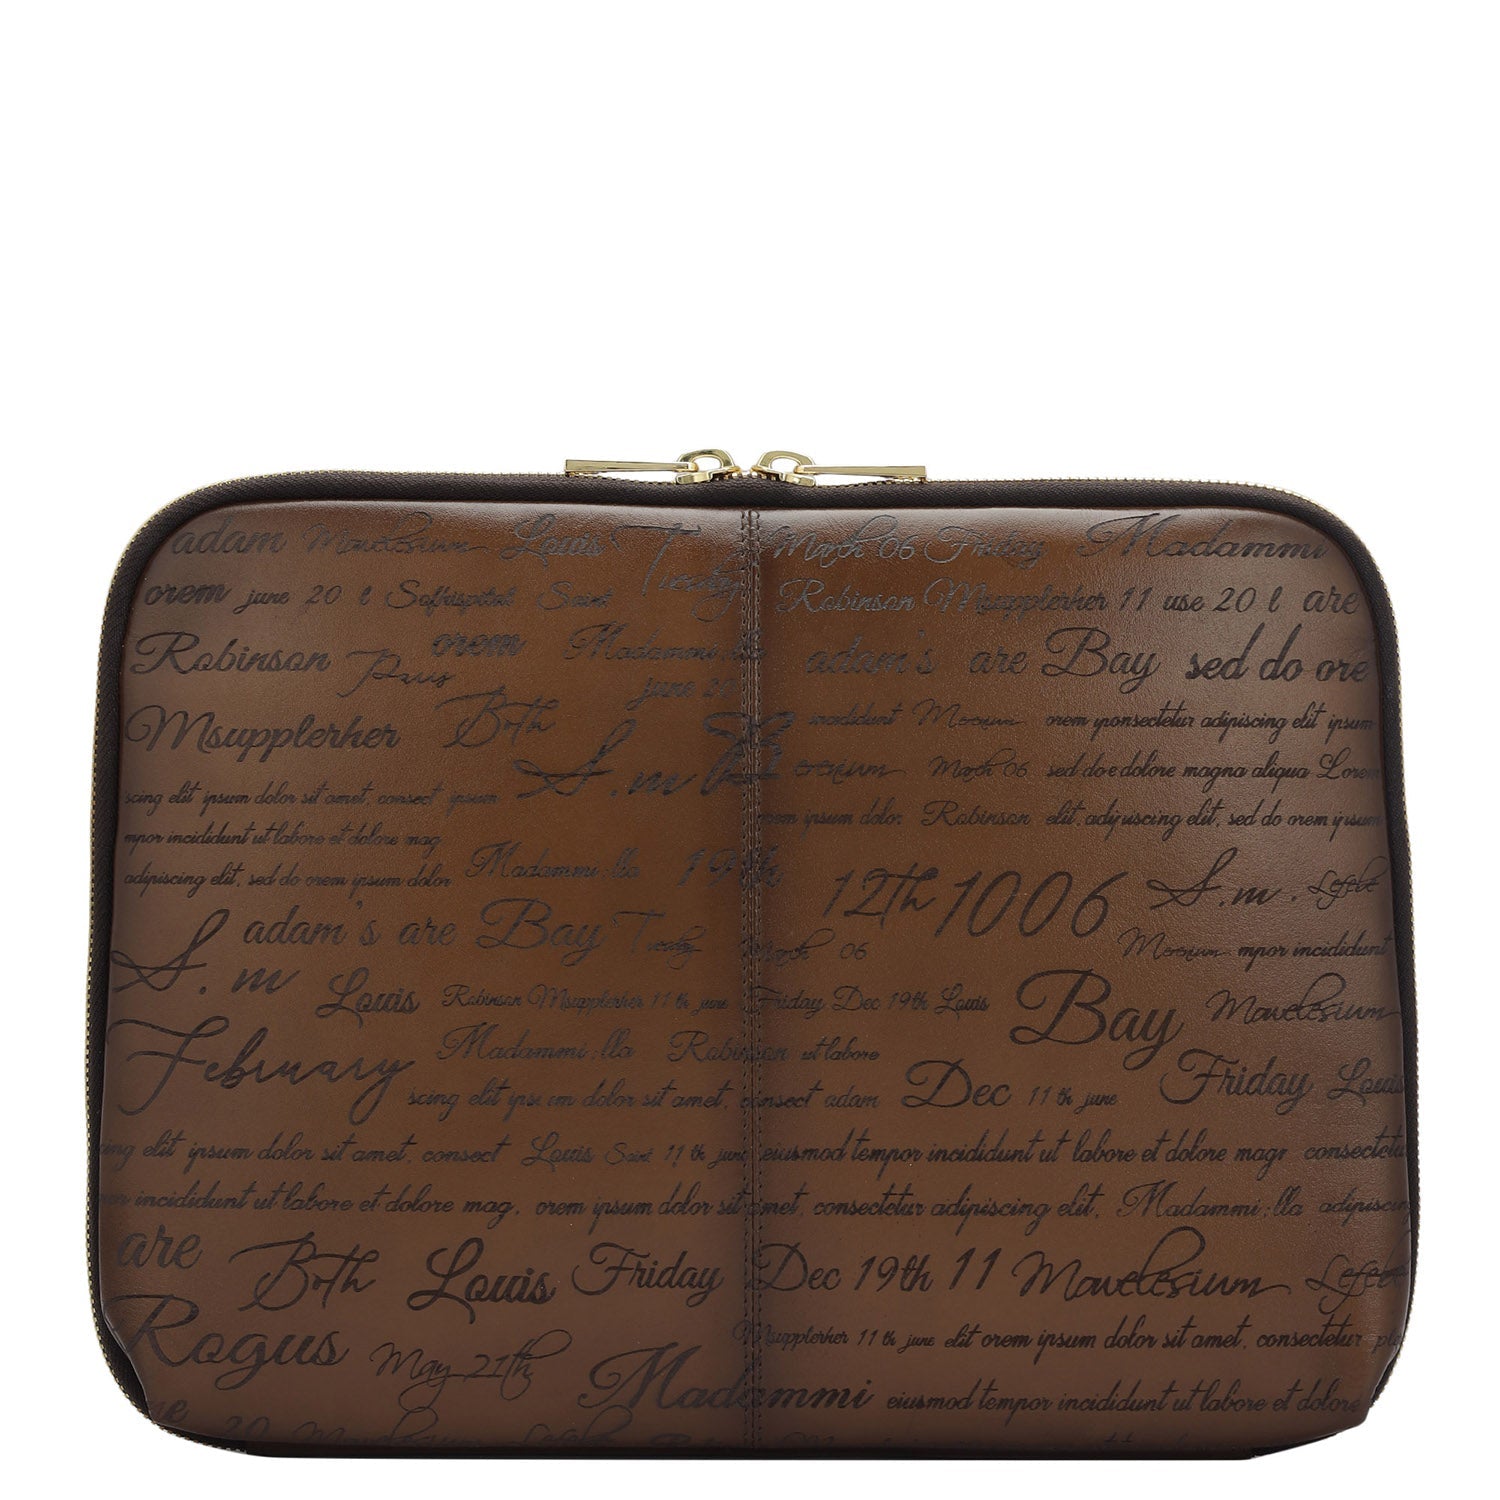 adam Mavelesium Louis Tuesday March 06 Friday Madammi
orem june 20 l Sofhispital Saint Robinson Msupplerher 11 use 20 l are
Robinson Paris orem Madammi:lla adam's are Bay sed do ore
june 20
Msupplerher Both incididunt Mecenium orem yponsectetur adipiscing elit ipsum
S.m March 06 sed do e dolore magna aliqua Lorem
scing elit ipsum dolor sit amet, consect ipsum
orem ipsum dolor Robinson elit, adipiscing elit, sed do orem ipsum
mpor incididunt ut labore et dolore mag
adipiscing elit, sed do orem ipsum dolor Madammi:lla 19th 12th 1006 S.m. Lefebe
adam's are Bay Tuesday March 06 mpor incididunt
S.m Louis Robinson Msupplerher 11 th june Friday Dec 19th Louis Bay Mavelesium
February Madammi:lla Robinson ut labore Friday Louis
scing elit ipsum dolor sit amet, consect adam Dec 11 th june
ing elit ipsum dolor sit amet, consect Louis Saint 11 th june eiusmod tempor incididunt ut labore et dolore magr consecteta
por incididunt ut labore et dolore mag, orem ipsum dolor sit amet, consectetur adipiscing elit, Madammi:lla adipiscing
are Both Louis Friday Dec 19th 11 Mavelesium Lefebe
Rogus May 21th Msupplerher 11 th june elit orem ipsum dolor sit amet, consectetur
Madammi eiusmod tempor incididunt ut labore et dolore
20